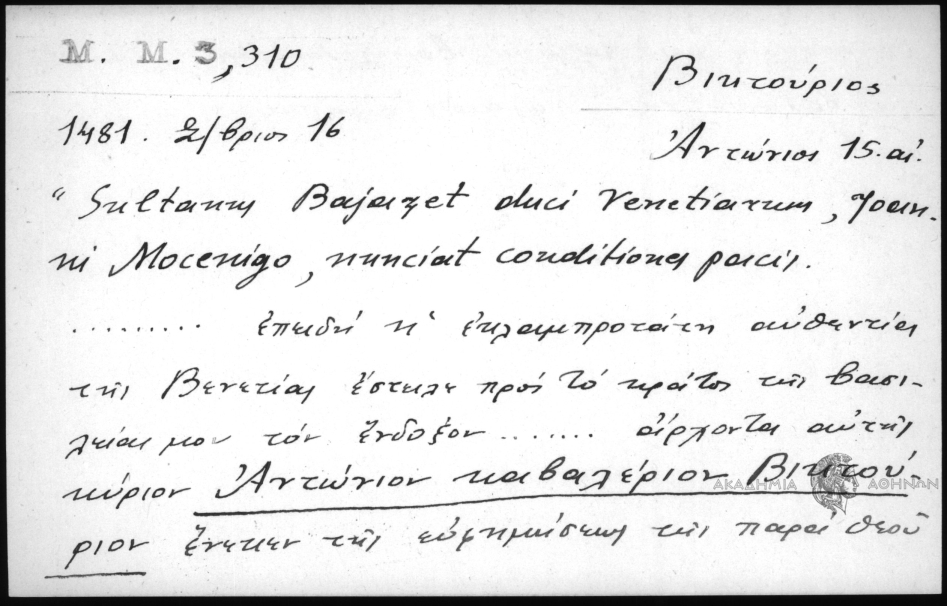 M. M. 3, 310.
Βικτούριος
1481. Σ/βριος 16
Ἀντώνιος 15. αἰ.
"Sultanus Bajazet duci Venetiarum, Joan-
ni Mocenigo, nunciat conditiones pacis.
......... ἐπειδὴ ἡ ἐκλαμπροτάτη αὐθεντία
τῆς Βενετίας ἔστειλε πρὸς τὸ κράτος τῆς βασι-
λείας μου τὸν ἔνδοξον ....... ἄρχοντα αὐτῆς
κύριον Ἀντώνιον καβαλέριον Βικτού-
ριον ἕνεκεν τῆς εὐφημίσεως τῆς παρὰ θεοῦ
ΑΚΑΔΗΜΙΑ ΑΘΗΝΩΝ